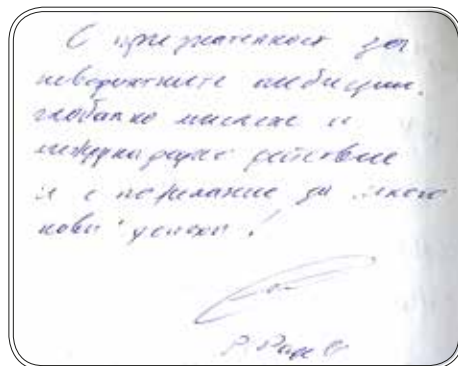 С признателност за
невероятните амбиции,
глобално мислене и
международно действие
и с пожелание за много
нови успехи!
Р. Радев